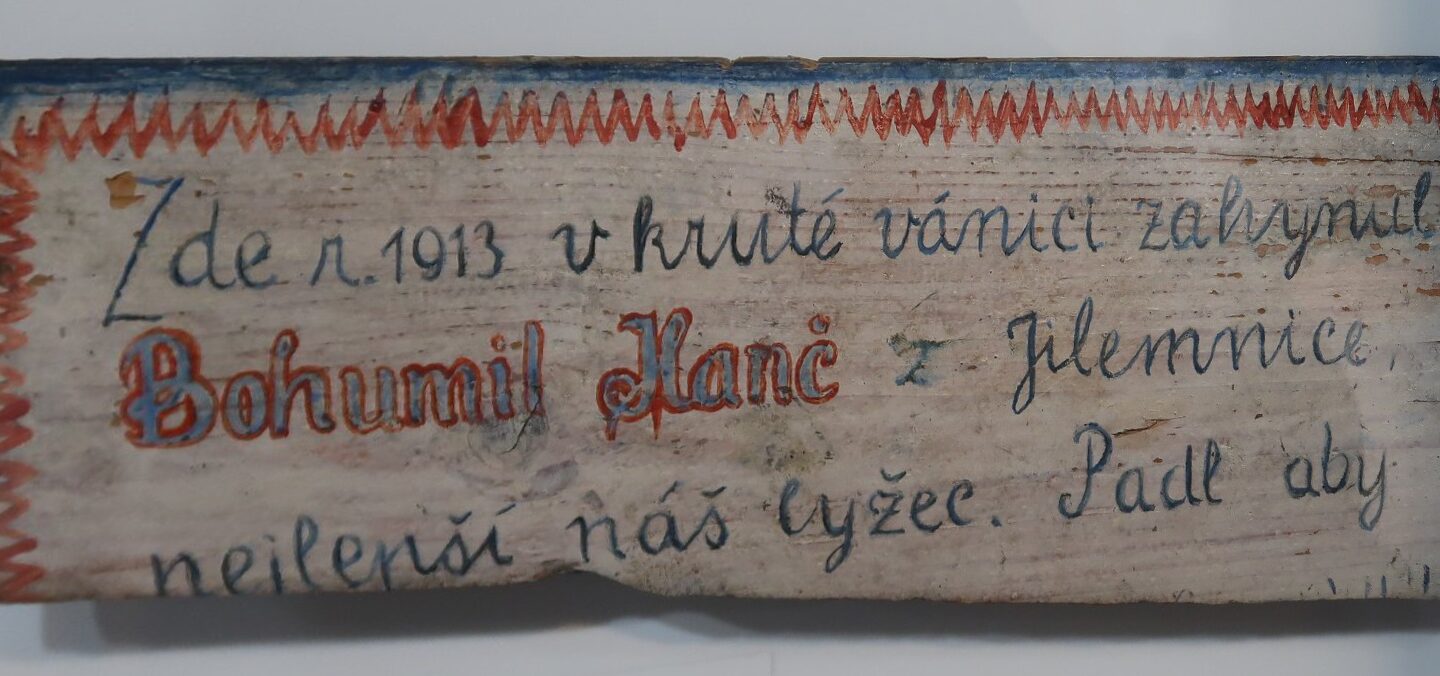 Zde r. 1913 v kruté vánici zahynul
Bohumil Hanč z Jilemnice,
nejlepší náš lyžec. Padl aby